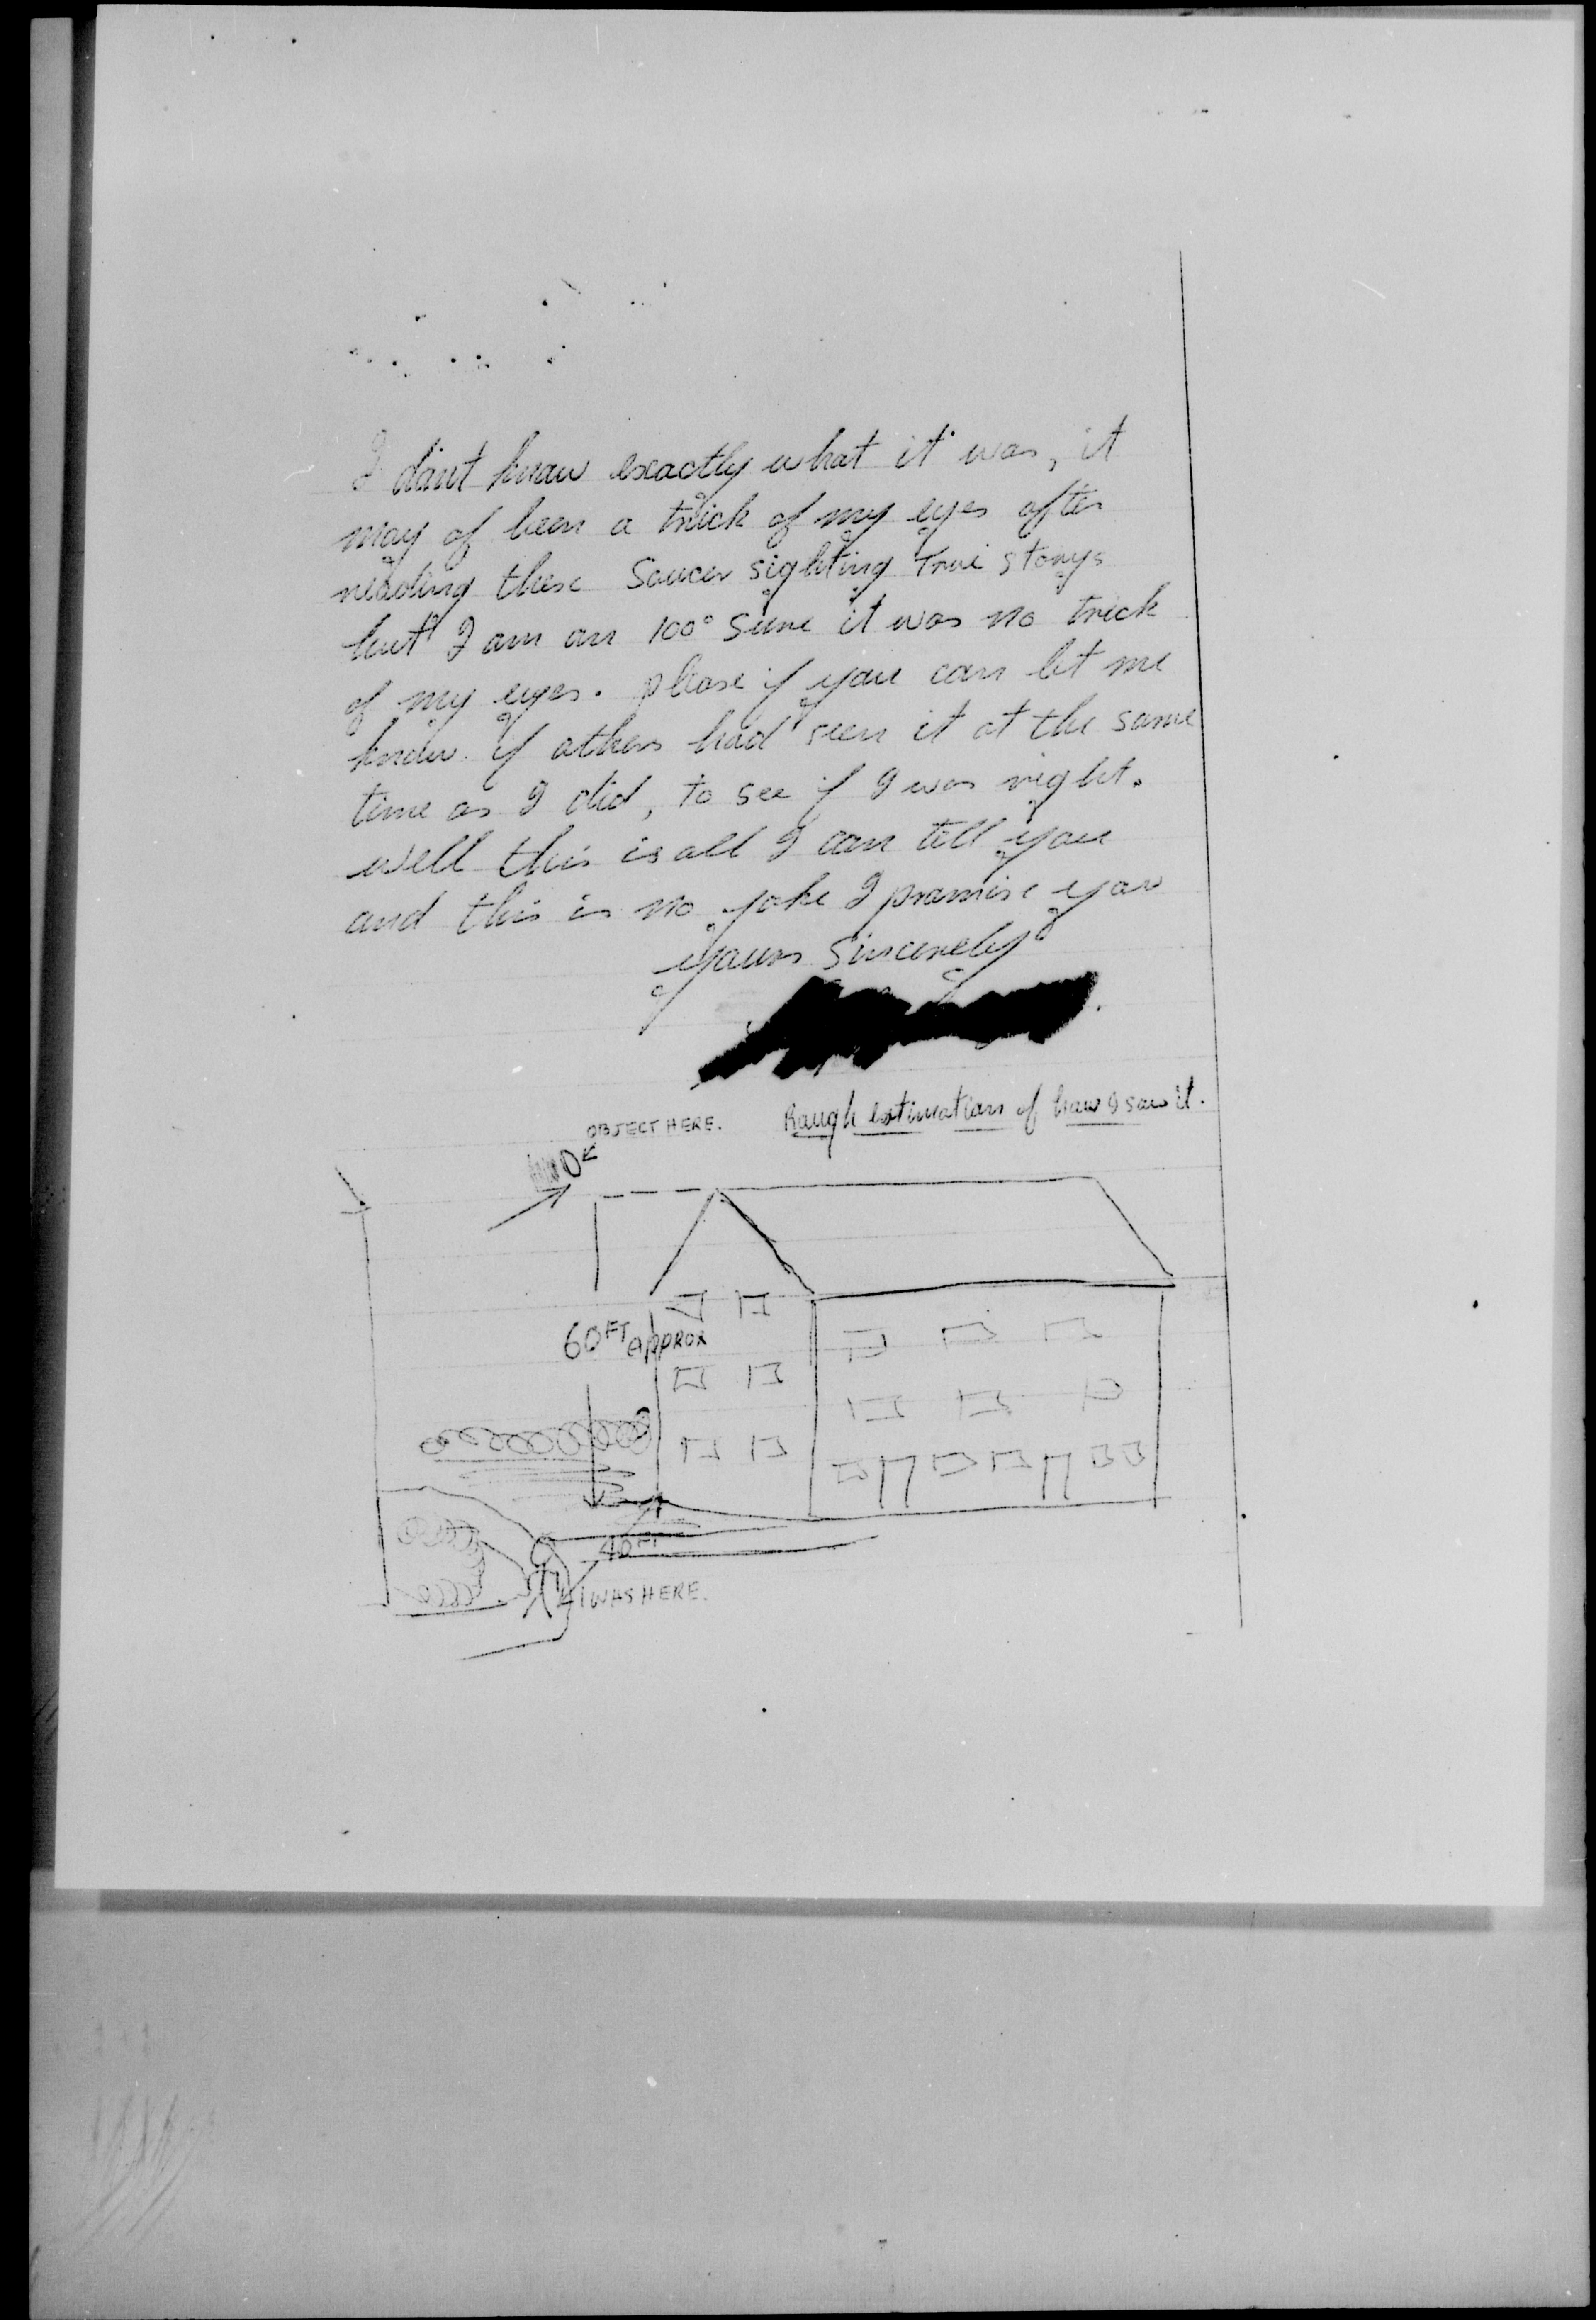 I don't know exactly what it was, it
may of been a trick of my eyes after
reading these Saucer sighting True storys
but I am an 100° sure it was no trick
of my eyes. please if you can let me
know if others had seen it at the same
time as I did, to see if I was right.
well this is all I can tell you
and this is no joke I promise you
yours sincerely
OBJECT HERE. Rough estimation of how I saw it.
60FT APPROX
40FT
I WAS HERE.